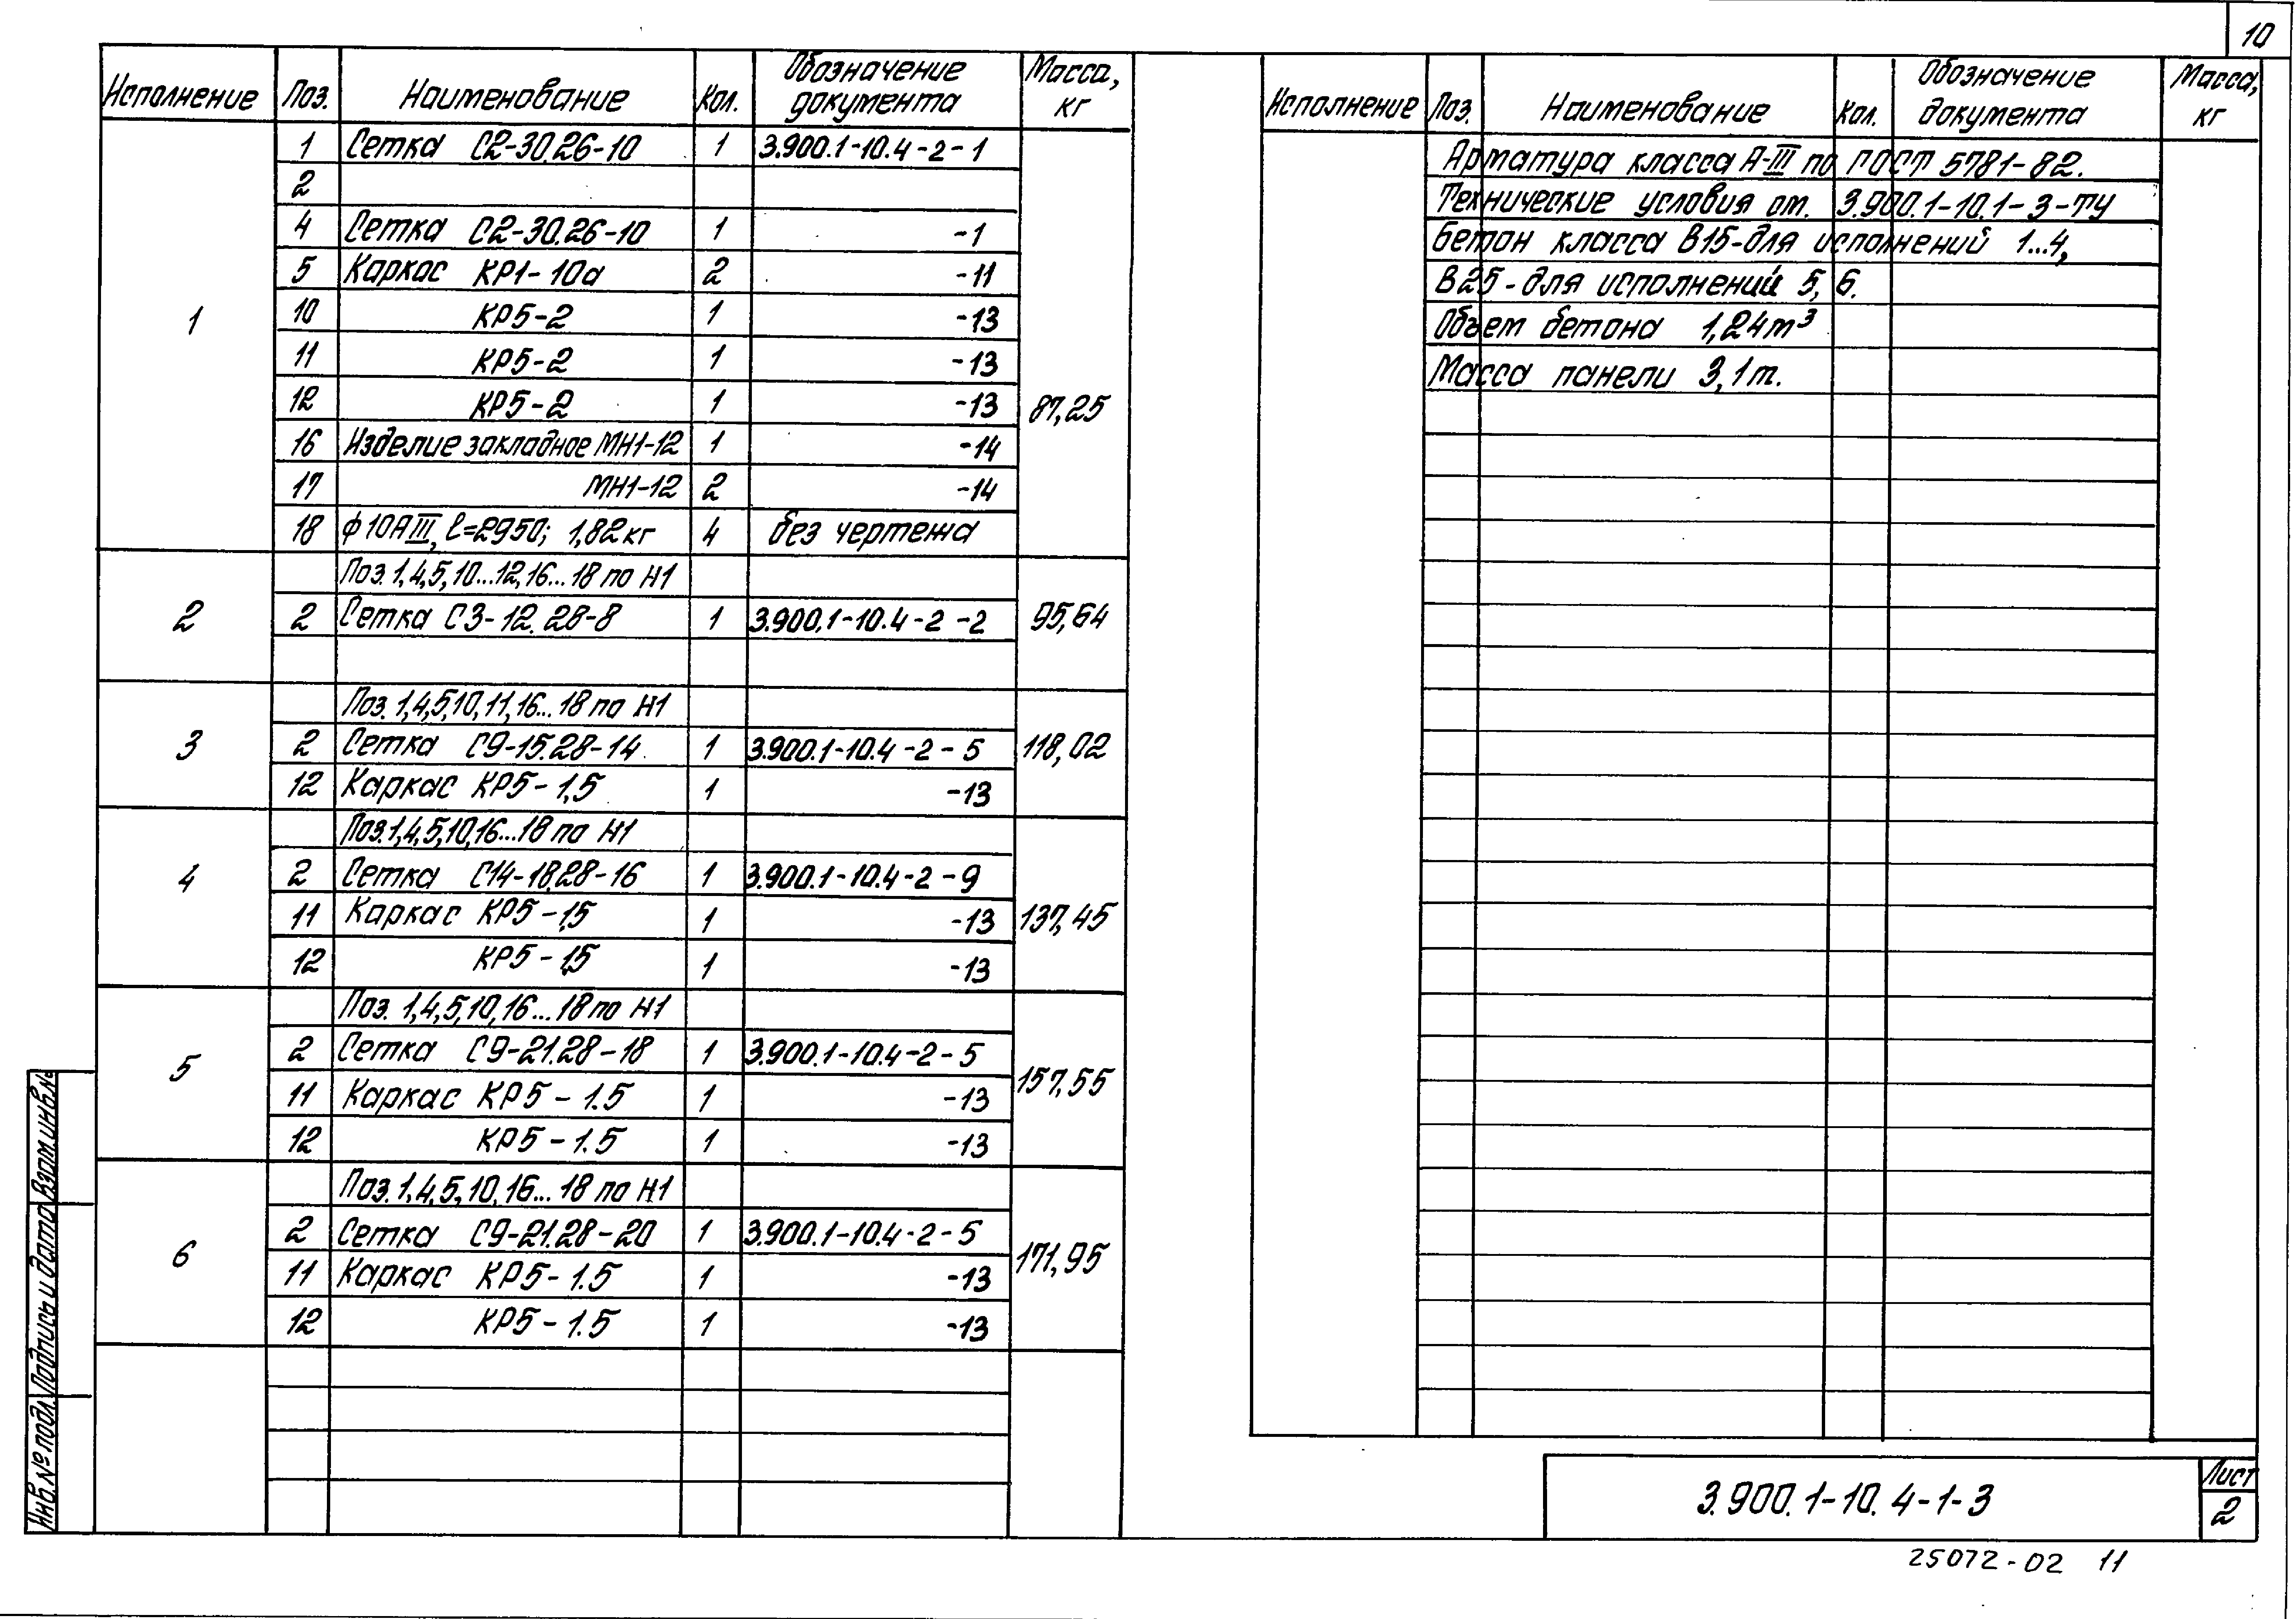 10
Исполнение Поз. Наименование Кол. Обозначение документа Масса, кг
1
1 Сетка С2-30.26-10 1 3.900.1-10.4-2-1
2
4 Сетка С2-30.26-10 1 -1
5 Каркас КР1-10а 2 -11
10 КР5-2 1 -13
11 КР5-2 1 -13
12 КР5-2 1 -13
87,25
16 Изделие закладное МН1-12 1 -14
17 МН1-12 2 -14
18 ф10АIII, l=2950; 1,82кг 4 без чертежа
2
Поз. 1,4,5,10...12,16...18 по И1
2 Сетка С3-12.28-8 1 3.900.1-10.4-2-2 95,64
3
Поз. 1,4,5,10,11,16...18 по И1
2 Сетка С9-15.28-14 1 3.900.1-10.4-2-5 118,02
12 Каркас КР5-1,5 1 -13
4
Поз.1,4,5,10,16...18 по И1
2 Сетка С14-18.28-16 1 3.900.1-10.4-2-9
11 Каркас КР5-1,5 1 -13 137,45
12 КР5-1,5 1 -13
5
Поз. 1,4,5,10,16...18 по И1
2 Сетка С9-21.28-18 1 3.900.1-10.4-2-5
11 Каркас КР5-1.5 1 -13 157,55
12 КР5-1.5 1 -13
6
Поз.1,4,5,10,16...18 по И1
2 Сетка С9-21.28-20 1 3.900.1-10.4-2-5
11 Каркас КР5-1.5 1 -13 171,95
12 КР5-1.5 1 -13
Исполнение Поз. Наименование Кол. Обозначение документа Масса, кг
Арматура класса А-III по ГОСТ 5781-82.
Технические условия см. 3.900.1-10.1-3-ТУ
Бетон класса В15-для исполнений 1...4,
В25-для исполнений 5, 6.
Объем бетона 1,24м³
Масса панели 3,1т.
Инв.№ подл. Подпись и дата Взам.инв.№
3.900.1-10.4-1-3
Лист
2
25072-02 11